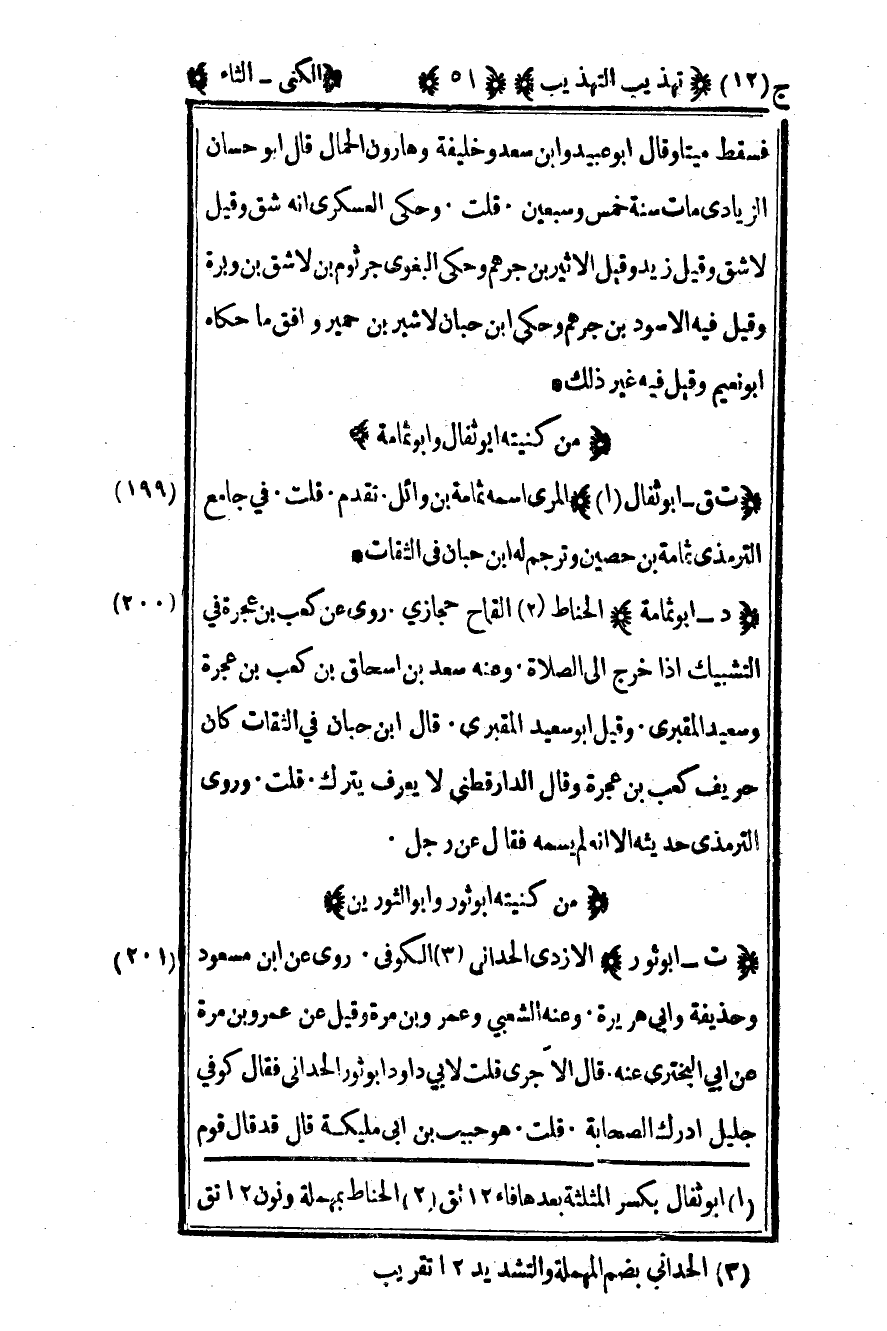 ج (١٢) ﴿ تهذيب التهذيب ﴾ ﴿ ٥١ ﴾ ﴿ الكنى ـ الثاء ﴾
فسقط ميتا وقال ابو عبيد وابن سعد وخليفة وهارون الحمال قال ابو حسان
الزيادى مات سنة خمس وسبعين · قلت · وحكى العسكرى انه شق وقيل
لاشق وقيل زيد وقيل الاثير بن جرهم وحكى البغوى جرثوم بن لاشق بن وبرة
وقيل فيه الاسود بن جرهم وحكى ابن حبان لاشبر بن حمير و افق ما حكاه
ابو نعيم وقيل فيه غير ذلك •
﴿ من كنيته ابو ثفال وابو ثمامة ﴾
﴿ ت ق ـ ابو ثفال (١) ﴾ المرى اسمه ثمامة بن وائل · تقدم · قلت · في جامع (١٩٩)
الترمذى ثمامة بن حصين وترجم له ابن حبان فى الثقات •
﴿ د ـ ابو ثمامة ﴾ الحناط (٢) القماح حجازي · روى عن كعب بن عجرة في (٢٠٠)
التشبيك اذا خرج الى الصلاة · وعنه سعد بن اسحاق بن كعب بن عجرة
وسعيد المقبرى · وقيل ابو سعيد المقبرى · قال ابن حبان في الثقات كان
حريف كعب بن عجرة وقال الدارقطني لا يعرف يترك · قلت · وروى
الترمذى حديثه الا انه لم يسمه فقال عن رجل ·
﴿ من كنيته ابو ثور وابو الثورين ﴾
﴿ ت ـ ابو ثور ﴾ الازدى الحدانى (٣) الكوفى · روى عن ابن مسعود (٢٠١)
وحذيفة وابي هريرة · وعنه الشعبي وعمرو بن مرة وقيل عن عمرو بن مرة
عن ابي البختري عنه · قال الآجرى قلت لابي داود ابو ثور الحدانى فقال كوفي
جليل ادرك الصحابة · قلت · هو حبيب بن ابى مليكة قال قد قال قوم
(١) ابو ثفال بكسر المثلثة بعدها فاء ١٢ تق (٢) الحناط بمهملة ونون ١٢ تق
(٣) الحداني بضم المهملة والتشديد ١٢ تقريب